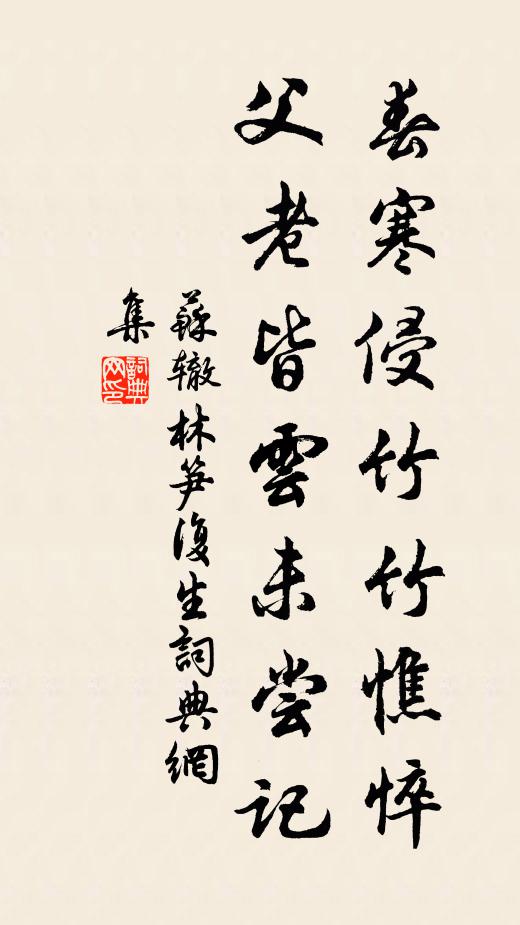 春寒侵竹竹憔悴
父老皆雲未尝记
蘇辙林笋復生詞典網
集
詞典
网印